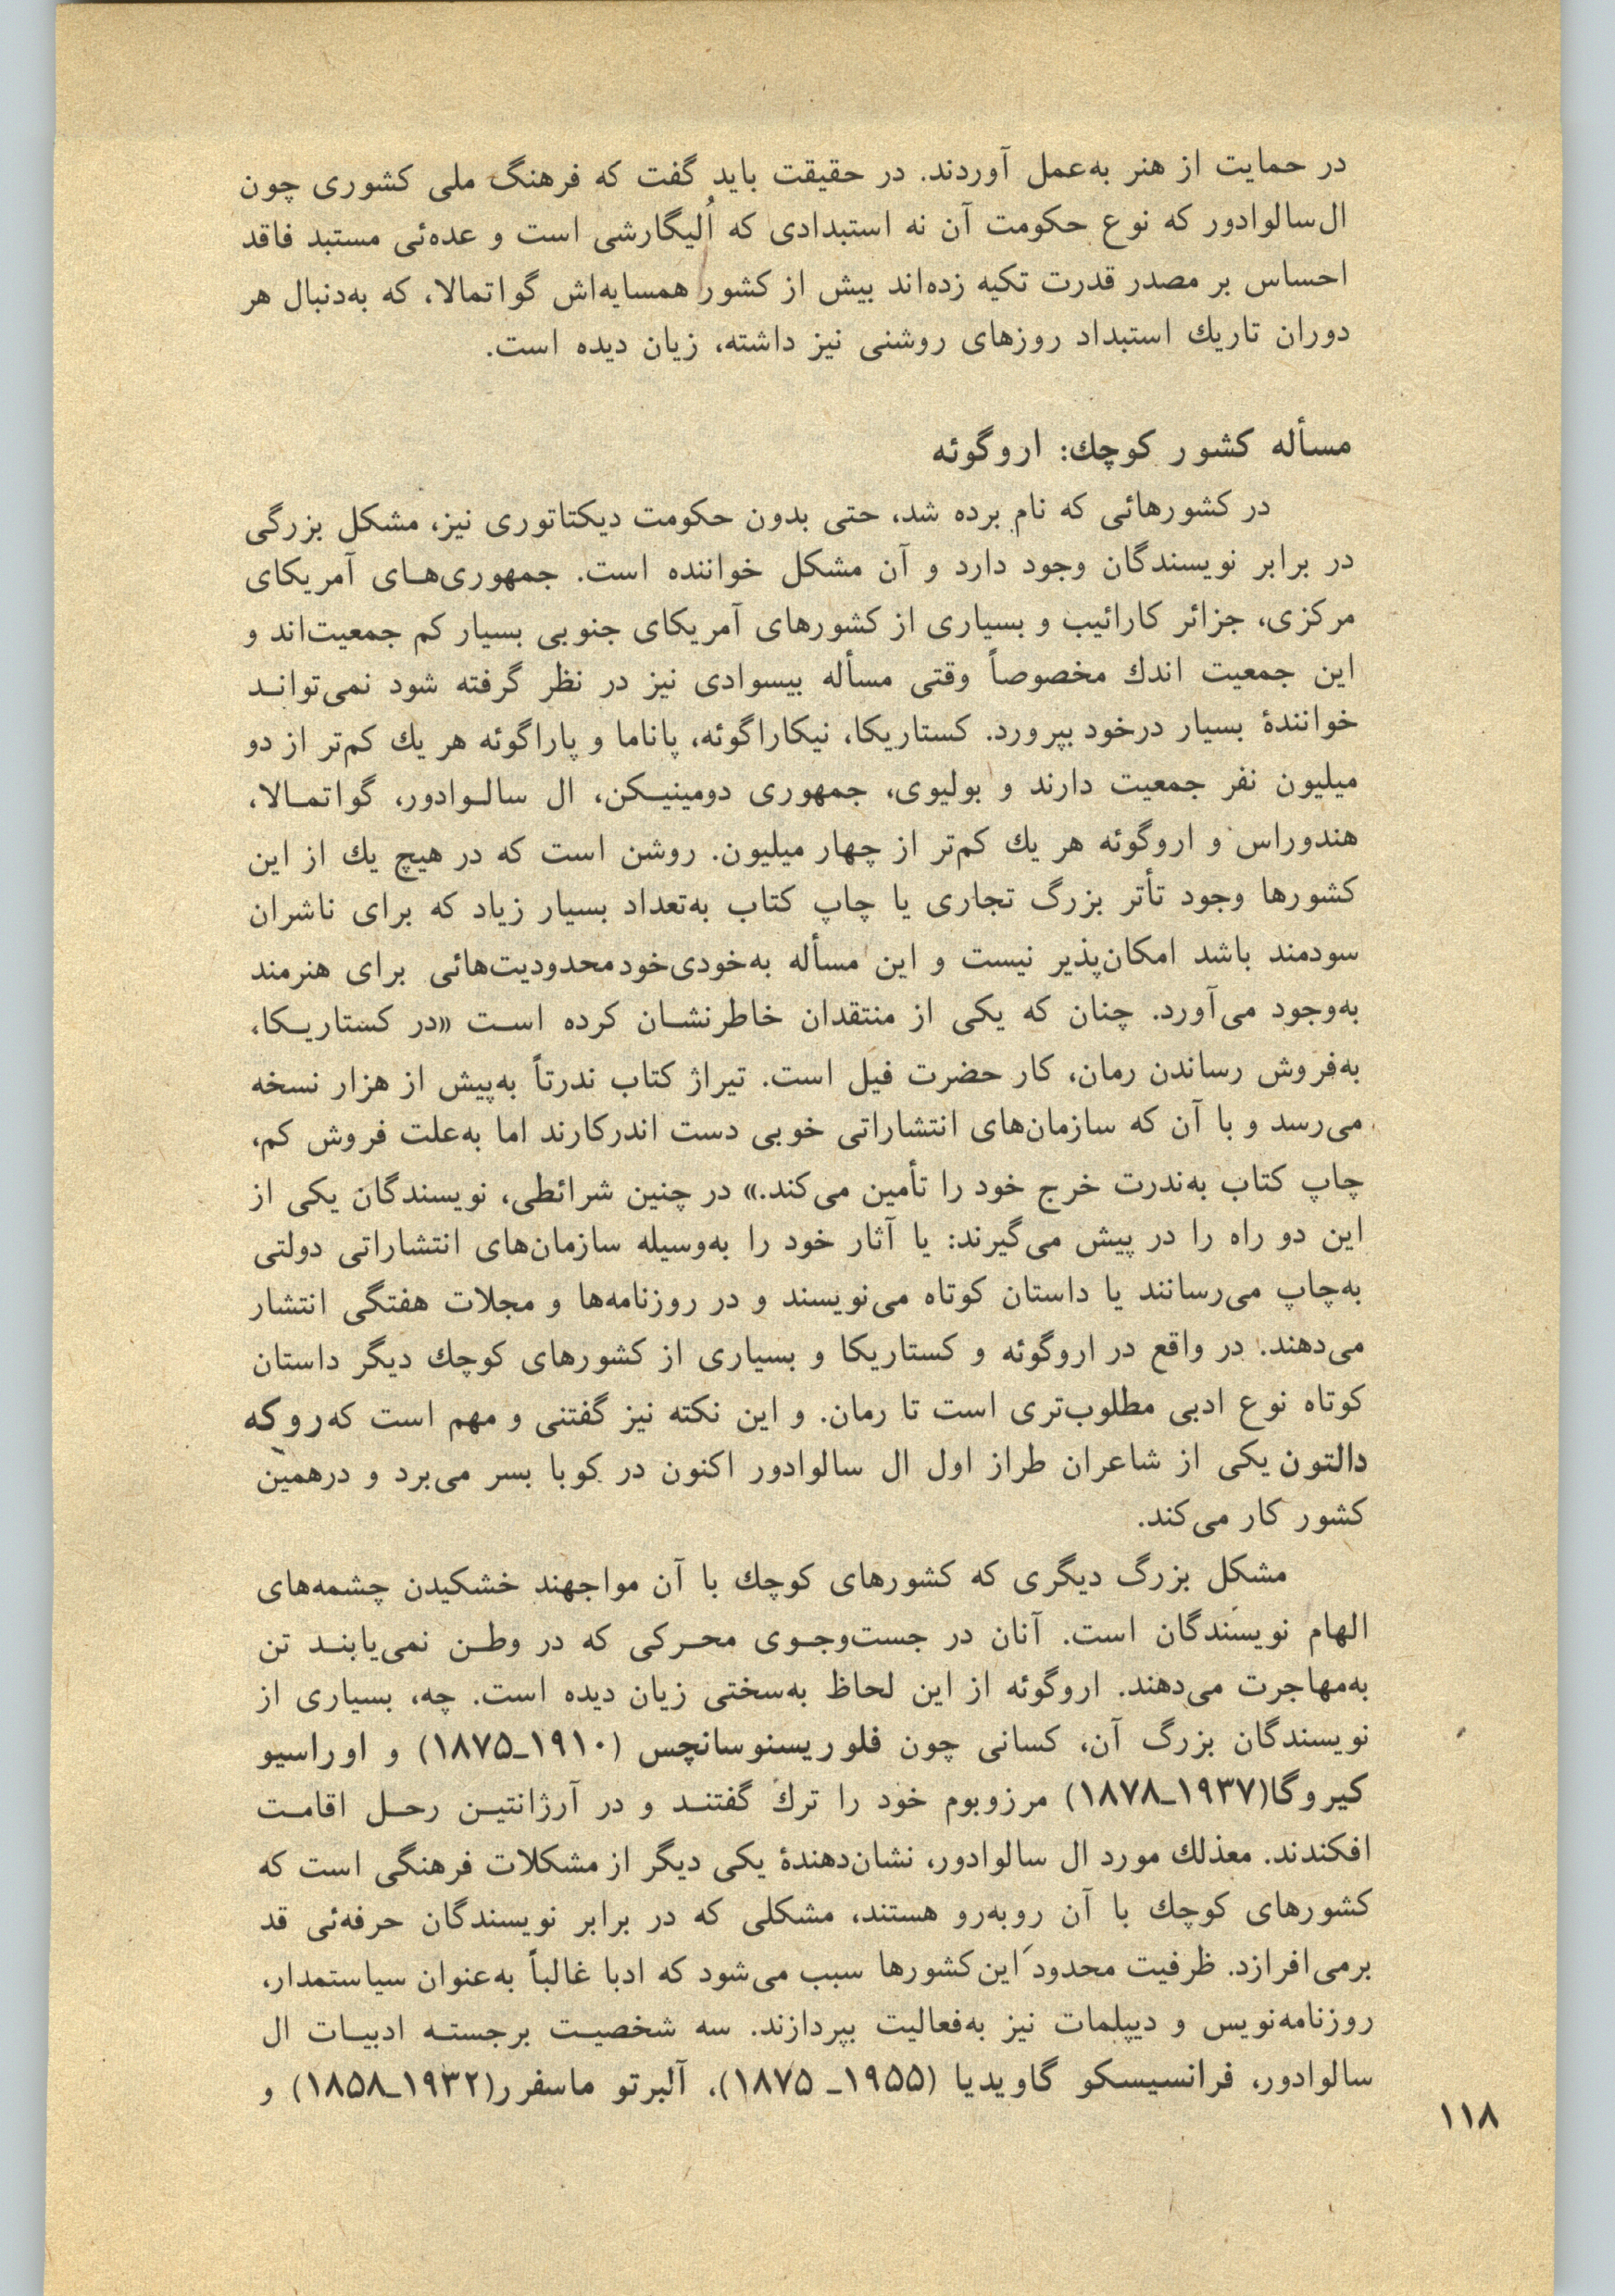 در حمایت از هنر به‌عمل آوردند. در حقیقت باید گفت که فرهنگ ملی کشوری چون
ال‌سالوادور که نوع حکومت آن نه استبدادی که اُلیگارشی است و عده‌ئی مستبد فاقد
احساس بر مصدر قدرت تکیه زده‌اند بیش از کشور همسایه‌اش گواتمالا، که به‌دنبال هر
دوران تاریك استبداد روزهای روشنی نیز داشته، زیان دیده است.
مسأله کشور کوچك: اروگوئه
در کشورهائی که نام برده شد، حتی بدون حکومت دیکتاتوری نیز، مشکل بزرگی
در برابر نویسندگان وجود دارد و آن مشکل خواننده است. جمهوری‌هـای آمریکای
مرکزی، جزائر کارائیب و بسیاری از کشورهای آمریکای جنوبی بسیار کم جمعیت‌اند و
این جمعیت اندك مخصوصاً وقتی مسأله بیسوادی نیز در نظر گرفته شود نمی‌توانـد
خوانندهٔ بسیار درخود بپرورد. کستاریکا، نیکاراگوئه، پاناما و پاراگوئه هر یك کم‌تر از دو
میلیون نفر جمعیت دارند و بولیوی، جمهوری دومینیـکن، ال سالـوادور، گواتمـالا،
هندوراس و اروگوئه هر یك کم‌تر از چهار میلیون. روشن است که در هیچ یك از این
کشورها وجود تأتر بزرگ تجاری یا چاپ کتاب به‌تعداد بسیار زیاد که برای ناشران
سودمند باشد امکان‌پذیر نیست و این مسأله به‌خودی‌خود محدودیت‌هائی برای هنرمند
به‌وجود می‌آورد. چنان که یکی از منتقدان خاطرنشـان کرده اسـت «در کستاریـکا،
به‌فروش رساندن رمان، کار حضرت فیل است. تیراژ کتاب ندرتاً به‌پیش از هزار نسخه
می‌رسد و با آن که سازمان‌های انتشاراتی خوبی دست اندرکارند اما به‌علت فروش کم،
چاپ کتاب به‌ندرت خرج خود را تأمین می‌کند.» در چنین شرائطی، نویسندگان یکی از
این دو راه را در پیش می‌گیرند: یا آثار خود را به‌وسیله سازمان‌های انتشاراتی دولتی
به‌چاپ می‌رسانند یا داستان کوتاه می‌نویسند و در روزنامه‌ها و مجلات هفتگی انتشار
می‌دهند. در واقع در اروگوئه و کستاریکا و بسیاری از کشورهای کوچك دیگر داستان
کوتاه نوع ادبی مطلوب‌تری است تا رمان. و این نکته نیز گفتنی و مهم است که روکه
دالتون یکی از شاعران طراز اول ال سالوادور اکنون در کوبا بسر می‌برد و درهمین
کشور کار می‌کند.
مشکل بزرگ دیگری که کشورهای کوچك با آن مواجهند خشکیدن چشمه‌های
الهام نویسندگان است. آنان در جست‌وجـوی محـرکی که در وطـن نمی‌یابنـد تن
به‌مهاجرت می‌دهند. اروگوئه از این لحاظ به‌سختی زیان دیده است. چه، بسیاری از
نویسندگان بزرگ آن، کسانی چون فلوریسنوسانچس (۱۹۱۰ـ۱۸۷۵) و اوراسیو
کیروگا(۱۹۳۷ـ۱۸۷۸) مرزوبوم خود را ترك گفتنـد و در آرژانتیـن رحـل اقامـت
افکندند. معذلك مورد ال سالوادور، نشان‌دهندهٔ یکی دیگر از مشکلات فرهنگی است که
کشورهای کوچك با آن روبه‌رو هستند، مشکلی که در برابر نویسندگان حرفه‌ئی قد
برمی‌افرازد. ظرفیت محدود این‌کشورها سبب می‌شود که ادبا غالباً به‌عنوان سیاستمدار،
روزنامه‌نویس و دیپلمات نیز به‌فعالیت بپردازند. سه شخصیـت برجستـه ادبیـات ال
سالوادور، فرانسیسکو گاویدیا (۱۹۵۵ـ ۱۸۷۵)، آلبرتو ماسفرر(۱۹۳۲ـ۱۸۵۸) و
۱۱۸